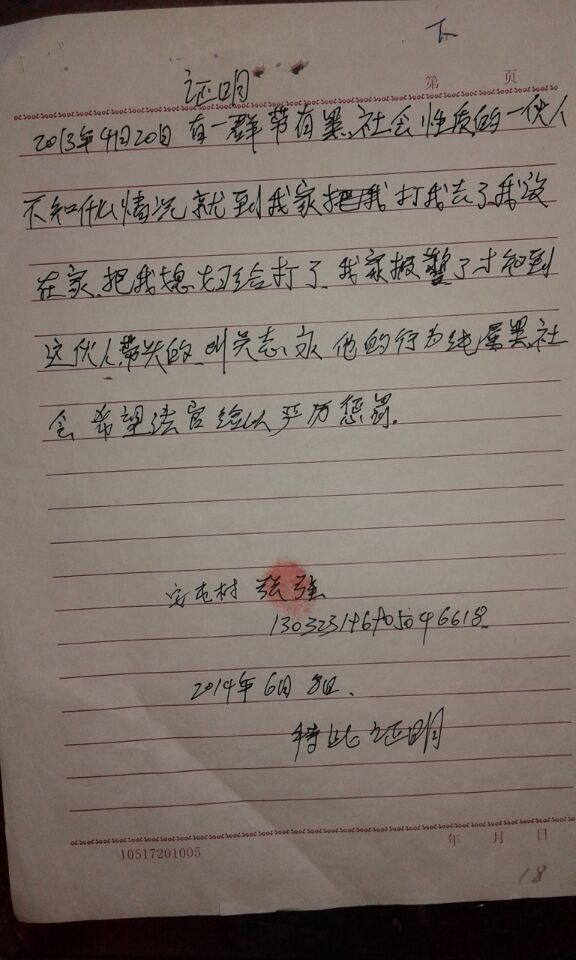 下
证明
第 页
2013年4月20日 有一群带有黑社会性质的一伙人
不知什么情况就到我家把我打我去了我没
在家、把我媳妇给打了、我家报警了才知到
这伙人带头的、叫关志、 他的行为纯属黑社
会 希望法官给以严厉惩罚.
屯村 张强
2014年6月8日.
特此证明
10517201005
年 月 日
18